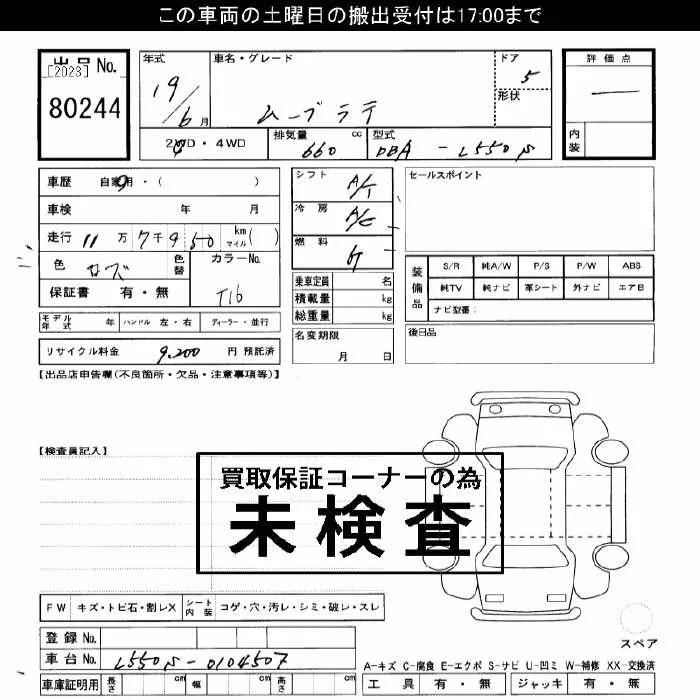 この車両の土曜日の搬出受付は17:00まで
出品 No.
[2023]
80244
年式
19/6月
車名・グレード
ムーブラテ
ドア
5
形状
評価点
内装
2WD・4WD
排気量 660 cc
型式 DBA-L550S
車歴 自家用・( )
車検 年 月
走行 11万7千950 km マイル( )
色
色替
カラーNo.
T16
保証書 有・無
シフト A/T
冷房 A/C
燃料
乗車定員 名
積載量 kg
総重量 kg
セールスポイント
装備品
S/R 純A/W P/S P/W ABS
純TV 純ナビ 革シート 外ナビ エアB
ナビ型番:
モデル年式 年 ハンドル 左・右 ディーラー・並行
名変期限
月 日
後日品
リサイクル料金 9,200 円 預託済
【出品店申告欄(不良箇所・欠品・注意事項等)】
【検査員記入】
買取保証コーナーの為
未検査
FW キズ・トビ石・割レX シート内装 コゲ・穴・汚レ・シミ・破レ・スレ
スペア
登録 No.
車台 No. L550S-0104507
A-キズ C-腐食 E-エクボ S-サビ U-凹ミ W-補修 XX-交換済
車庫証明用 長さ cm 幅 cm 高さ cm
工具 有・無 ジャッキ 有・無